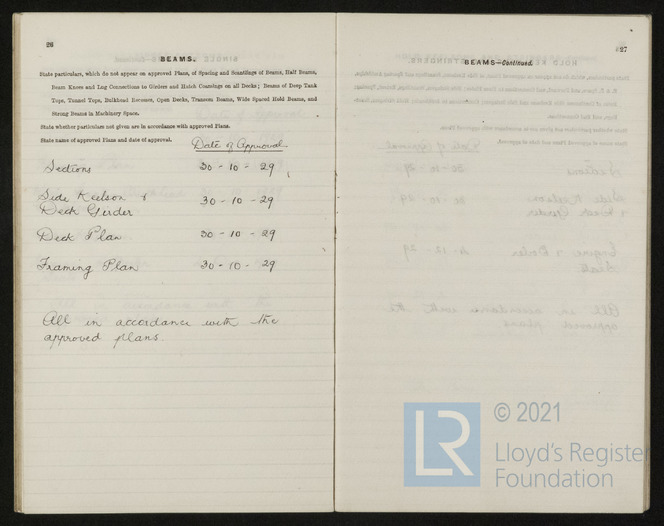 26
BEAMS.
State particulars, which do not appear on approved Plans, of Spacing and Scantlings of Beams, Half Beams,
Beam Knees and Lug Connections to Girders and Hatch Coamings on all Decks; Beams of Deep Tank
Tops, Tunnel Tops, Bulkhead Recesses, Open Decks, Transom Beams, Wide Spaced Hold Beams, and
Strong Beams in Machinery Space.
State whether particulars not given are in accordance with approved Plans.
State name of approved Plans and date of approval.
Date of Approval.
Sections 30-10-29
Side Keelson &
Deck Girder 30-10-29
Deck Plan 30-10-29
Framing Plan 30-10-29
All in accordance with the
approved plans.
27
BEAMS—Continued.
LR
© 2021
Lloyd's Register
Foundation